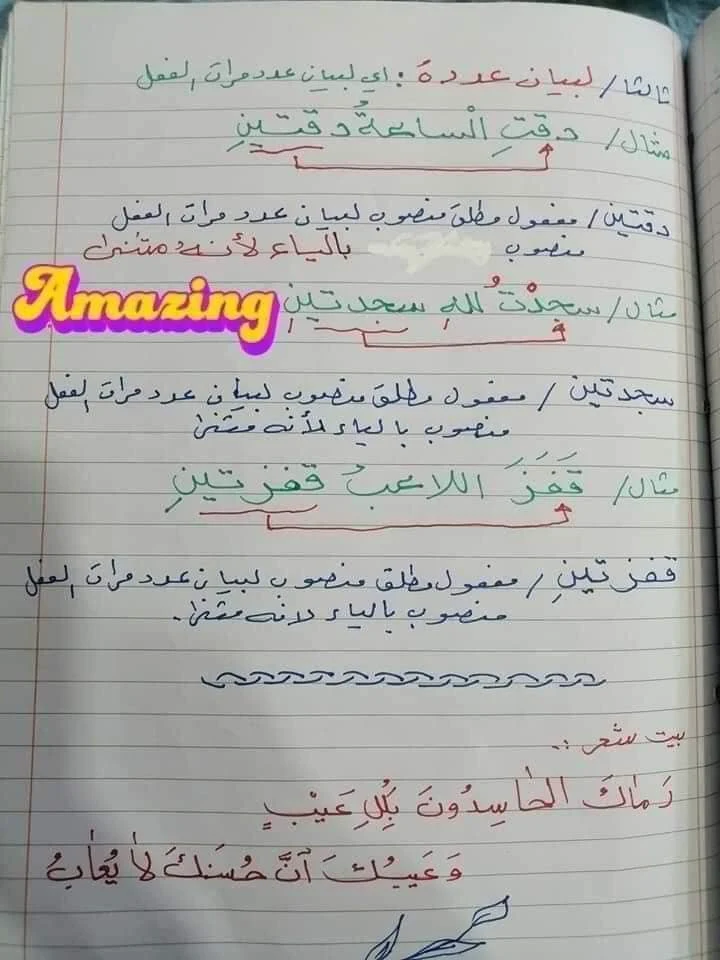 ثالثا / لبيان عددهُ : اي لبيان عدد مرات الفعل
مثال / دقتِ الْساعةُ دقتينِ
دقتين / مفعول مطلق منصوب لبيان عدد مرات الفعل
منصوب بالياء لأنه مثنى
Amazing
مثال / سجدْتُ للهِ سجدتينِ
سجدتين / مفعول مطلق منصوب لبيان عدد مرات الفعل
منصوب بالياء لأنه مثنى
مثال / قَفَزَ اللاعبُ قفزتينِ
قفزتينِ / مفعول مطلق منصوب لبيان عدد مرات الفعل
منصوب بالياء لانه مثنى.
بيت شعر :.
رَماكَ الحاسِدُونَ بِكُلِ عَيْبٍ
وَعَيبُكَ آنَّ حُسَنَكَ لا يُعابُ